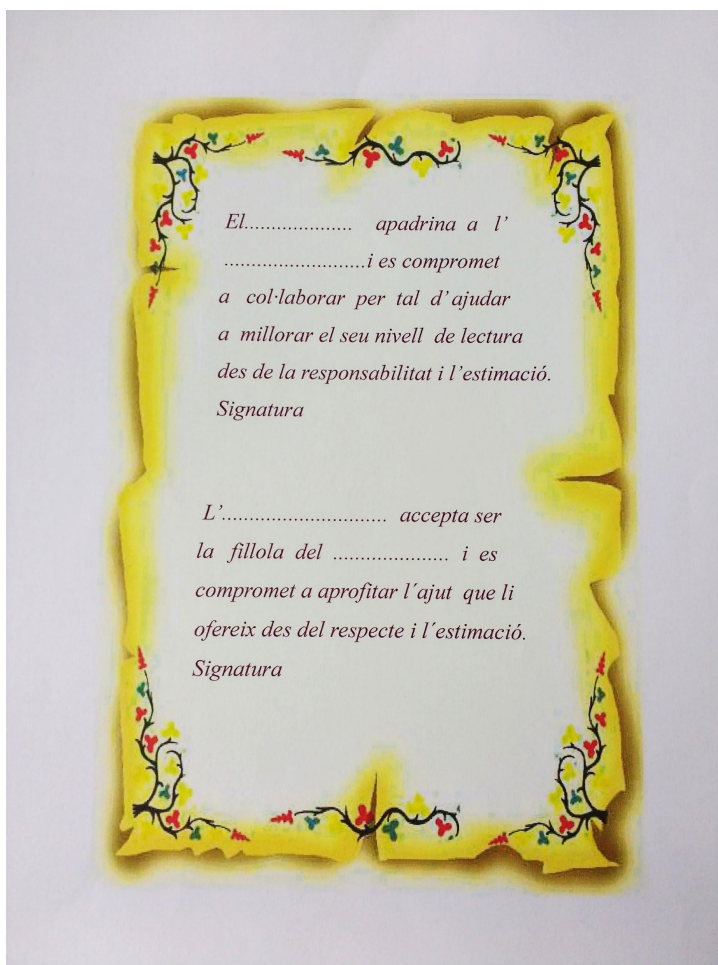 El.................... apadrina a l’
..........................i es compromet
a col·laborar per tal d’ajudar
a millorar el seu nivell de lectura
des de la responsabilitat i l’estimació.
Signatura
L’.............................. accepta ser
la fillola del ..................... i es
compromet a aprofitar l´ajut que li
ofereix des del respecte i l´estimació.
Signatura